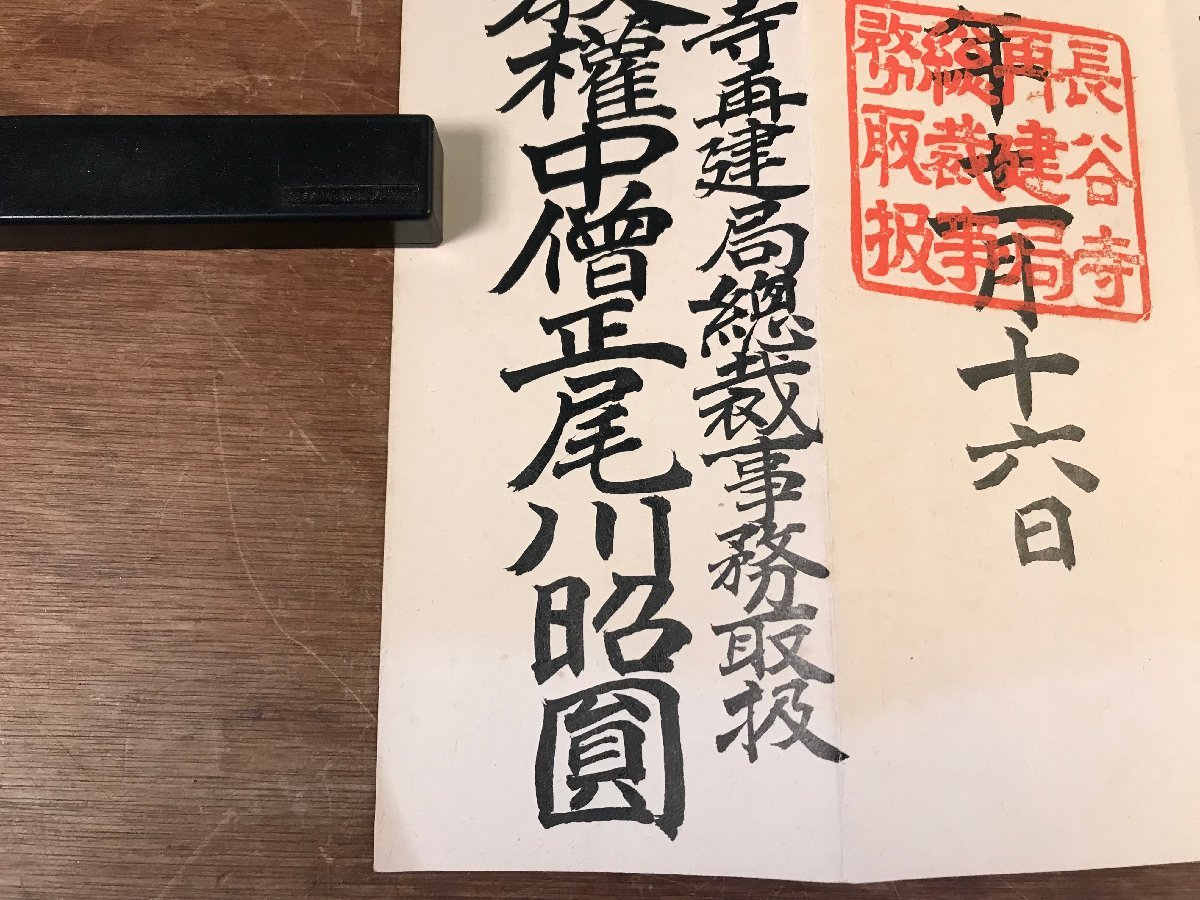 年十一月十六日
長谷寺
再建局
總裁事
務取扱
寺再建局總裁事務取扱
權中僧正尾川昭圓